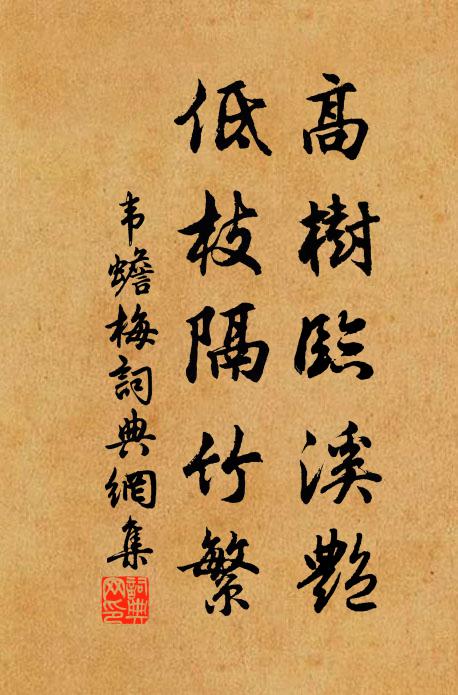 高樹臨溪艷
低枝隔竹繁
韦蟾梅詞典網集
詞典网印